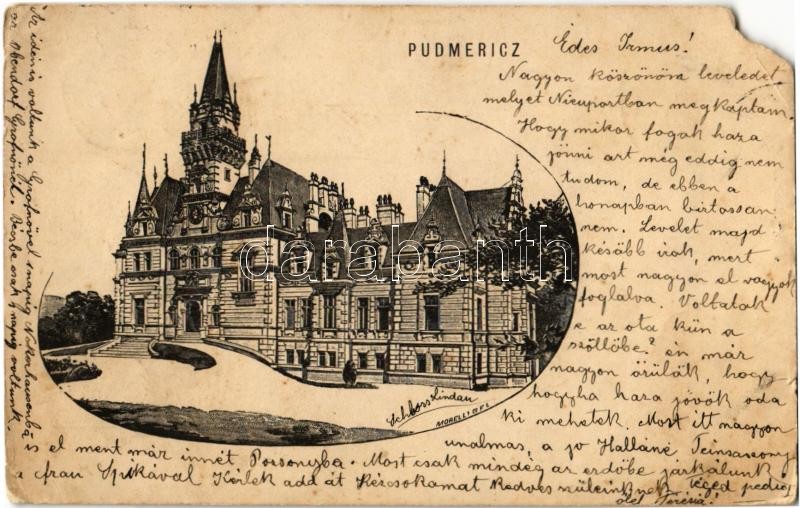 PUDMERICZ
Édes Irmus!
Nagyon köszönöm leveledet
melyet Nieuportban megkaptam.
Hogy mikor fogok haza
jönni azt még eddig nem
tudom, de ebben a
honapban biztossan
nem. Levelet majd
később irok, mert
most nagyon el vagyok
foglalva. Voltatok
e az ota kün a
szőllőbe? én már
nagyon örülök, hogy
hogyha haza jövök oda
ki mehetek. Most itt nagyon
unalmas, a jo Halláné
is el ment már innét Pozsonyba. Most csak mindég az erdőbe járkálunk
a frau Spikával Kérlek add át Kézcsokomat kedves szüleinknek téged pedig
ölel Terézia!
Az idén is voltunk a Grofnövel
Grofnönél. Bécsbe voltunk.
Schloss Lindau
darabanth